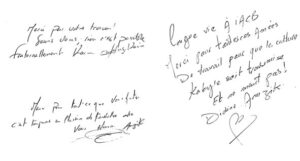 Merci pour votre travail !
Sans vous, rien n'est possible
Fraternellement
Merci pour tout ce que vous faites
c'est toujours un plaisir de
Longue vie à l'ACB
Merci pour toutes ces années
De travail pour que la culture
Kabyle soit transmise
Et ne meurt pas !